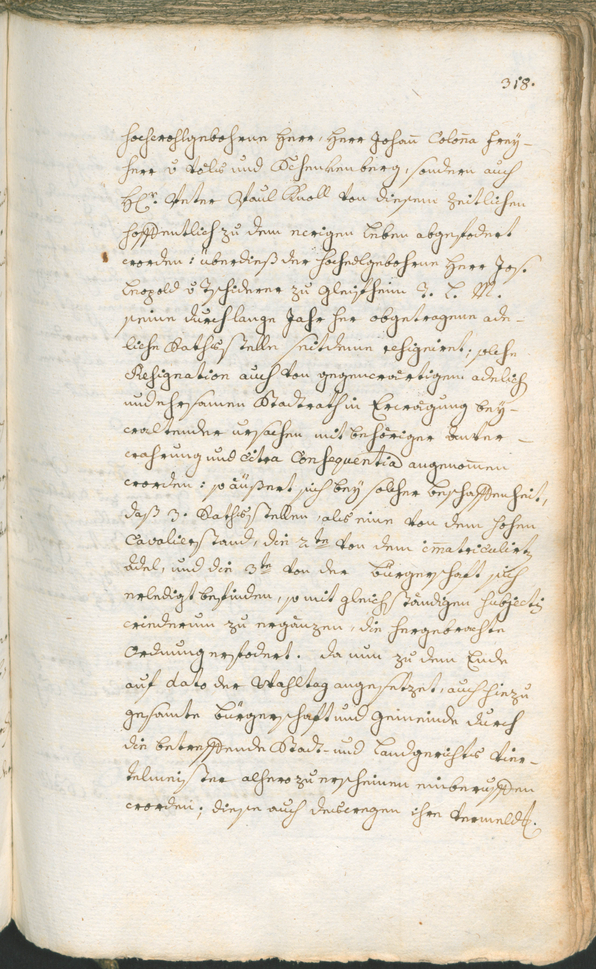 318.
hochwohlgebohrne Herr, Herr Johañ Coloña Frey-
herr v Völs und Schenkenberg, sondern auch
H. Peter Paul Knoll von diesem Zeitlichen
hoffentlich zu dem ewigen Leben abgefodert
worden: überdieß der hochedlgebohrne Herr Jos.
Leopold v Tschiderer zu Gleifheim T. L. M.
seine durch lange Jahr her obgetragene ade-
liche Rathsstelle seitdeme resigniret; solche
Resignation auch von gegenwärtigem adelich
und ehrsamen Stadtrath in Erwägung bey-
waltender Ursachen mit behöriger
wahrung und citra Consequentia angenom̄en
worden: so äußert sich bey solcher beschaffenheit,
daß 3. Rathsstellen, als eine von dem hohen
Cavalierstand, die 2te von dem im̄atriculirt
Adel, und die 3te von der Bürgerschaft sich
erledigt befinden, so mit gleich ständigen Subjectis
wiederum zu ergänzen, die hergebrachte
Ordnung erfodert. Da nun zu dem Ende
auf dato der Wahltag angesetzet, auch hiezu
gesamte Bürgerschaft und Gemeinde durch
die betreffende Stadt- und Landgerichts Vier-
telmeister alhero zu erscheinen einberuffen
worden; diese auch deswegen ihre